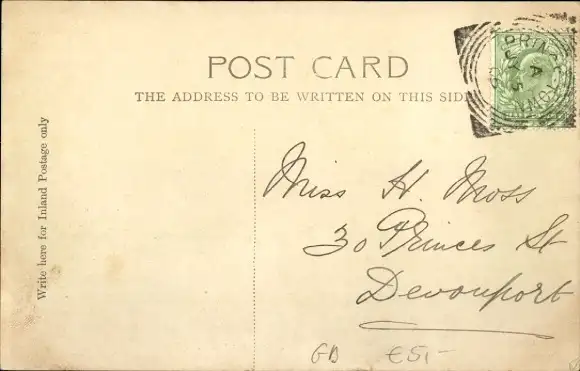 POST CARD
THE ADDRESS TO BE WRITTEN ON THIS SIDE
Write here for Inland Postage only
Miss H. Moss
30 Princes St
Devonport
GB €5,-
A
5